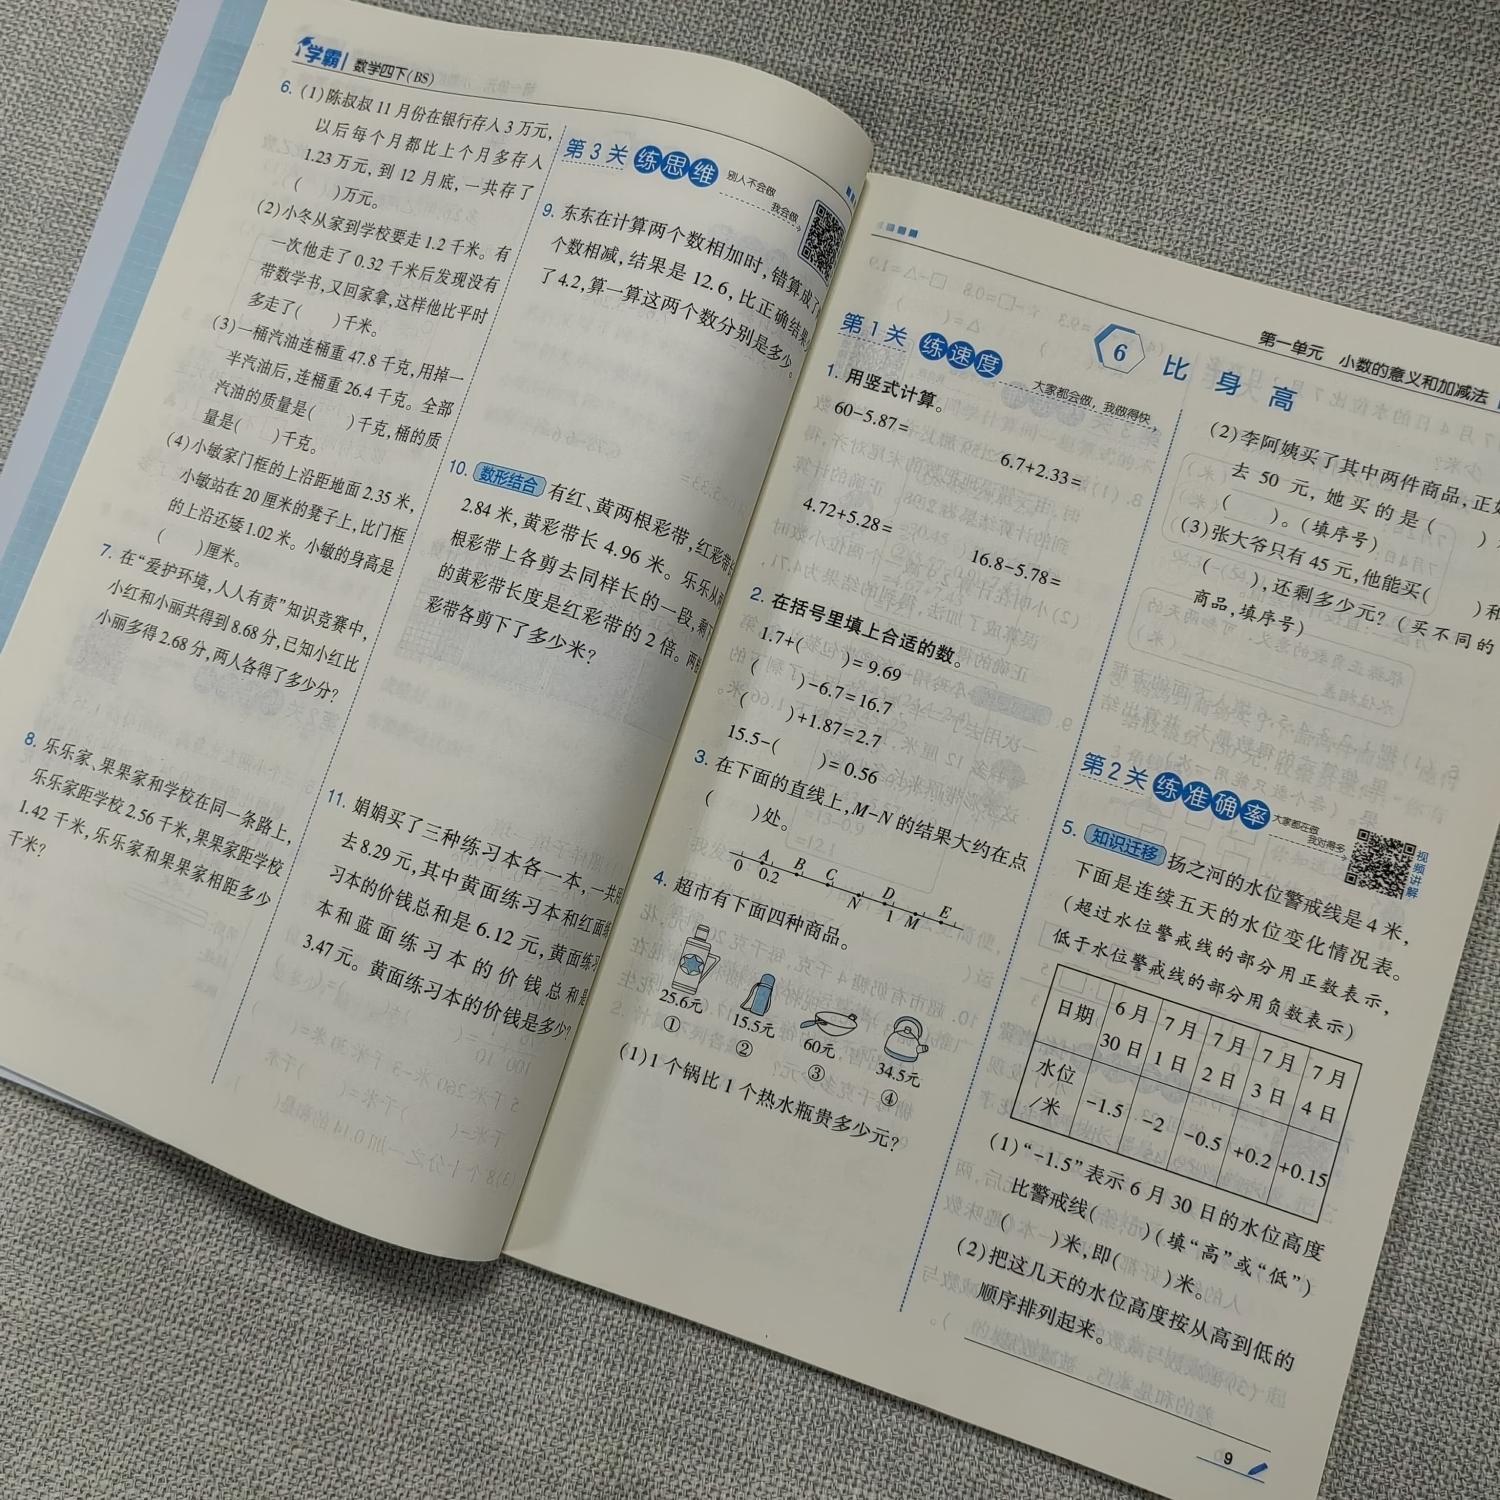 学霸 数学四下(BS)
6. (1)陈叔叔11月份在银行存入3万元,
以后每个月都比上个月多存入
1.23万元,到12月底,一共存了
(    )万元。
(2)小冬从家到学校要走1.2千米。有
一次他走了0.32千米后发现没有
带数学书,又回家拿,这样他比平时
多走了(    )千米。
(3)一桶汽油连桶重47.8千克,用掉一
半汽油后,连桶重26.4千克。全部
汽油的质量是(    )千克,桶的质
量是(    )千克。
(4)小敏家门框的上沿距地面2.35米,
小敏站在20厘米的凳子上,比门框
的上沿还矮1.02米。小敏的身高是
(    )厘米。
7. 在“爱护环境,人人有责”知识竞赛中,
小红和小丽共得到8.68分,已知小红比
小丽多得2.68分,两人各得了多少分?
8. 乐乐家、果果家和学校在同一条路上,
乐乐家距学校2.56千米,果果家距学校
1.42千米,乐乐家和果果家相距多少
千米?
第3关 练思维 别人不会做
我会做
9. 东东在计算两个数相加时,错算成了
个数相减,结果是12.6,比正确结果
了4.2,算一算这两个数分别是多少。
10. 数形结合 有红、黄两根彩带,红彩带
2.84米,黄彩带长4.96米。乐乐从
根彩带上各剪去同样长的一段,剩
的黄彩带长度是红彩带的2倍。两
彩带各剪下了多少米?
11. 娟娟买了三种练习本各一本,一共
去8.29元,其中黄面练习本和红面
习本的价钱总和是6.12元,黄面练
本和蓝面练习本的价钱总和是
3.47元。黄面练习本的价钱是多少?
第一单元 小数的意义和加减法
6 比身高
第1关 练速度 大家都会做,我做得快
1. 用竖式计算。
60-5.87=
6.7+2.33=
4.72+5.28=
16.8-5.78=
2. 在括号里填上合适的数。
1.7+(    )=9.69
(    )-6.7=16.7
(    )+1.87=2.7
15.5-(    )=0.56
3. 在下面的直线上,M-N的结果大约在点
(    )处。
A B C D E
0 0.2 N 1 M
4. 超市有下面四种商品。
25.6元 15.5元 60元 34.5元
① ② ③ ④
(1)1个锅比1个热水瓶贵多少元?
(2)李阿姨买了其中两件商品,正
去50元,她买的是(    )
(    )。(填序号)
(3)张大爷只有45元,他能买(    )和
(    ),还剩多少元?(买不同的
商品,填序号)
第2关 练准确率 大家都在做
我对得多
视频讲解
5. 知识迁移 扬之河的水位警戒线是4米,
下面是连续五天的水位变化情况表。
(超过水位警戒线的部分用正数表示,
低于水位警戒线的部分用负数表示)
日期 6月30日 7月1日 7月2日 7月3日 7月4日
水位/米 -1.5 -2 -0.5 +0.2 +0.15
(1)“-1.5”表示6月30日的水位高度
比警戒线(    )(填“高”或“低”)
(    )米,即(    )米。
(2)把这几天的水位高度按从高到低的
顺序排列起来。
9